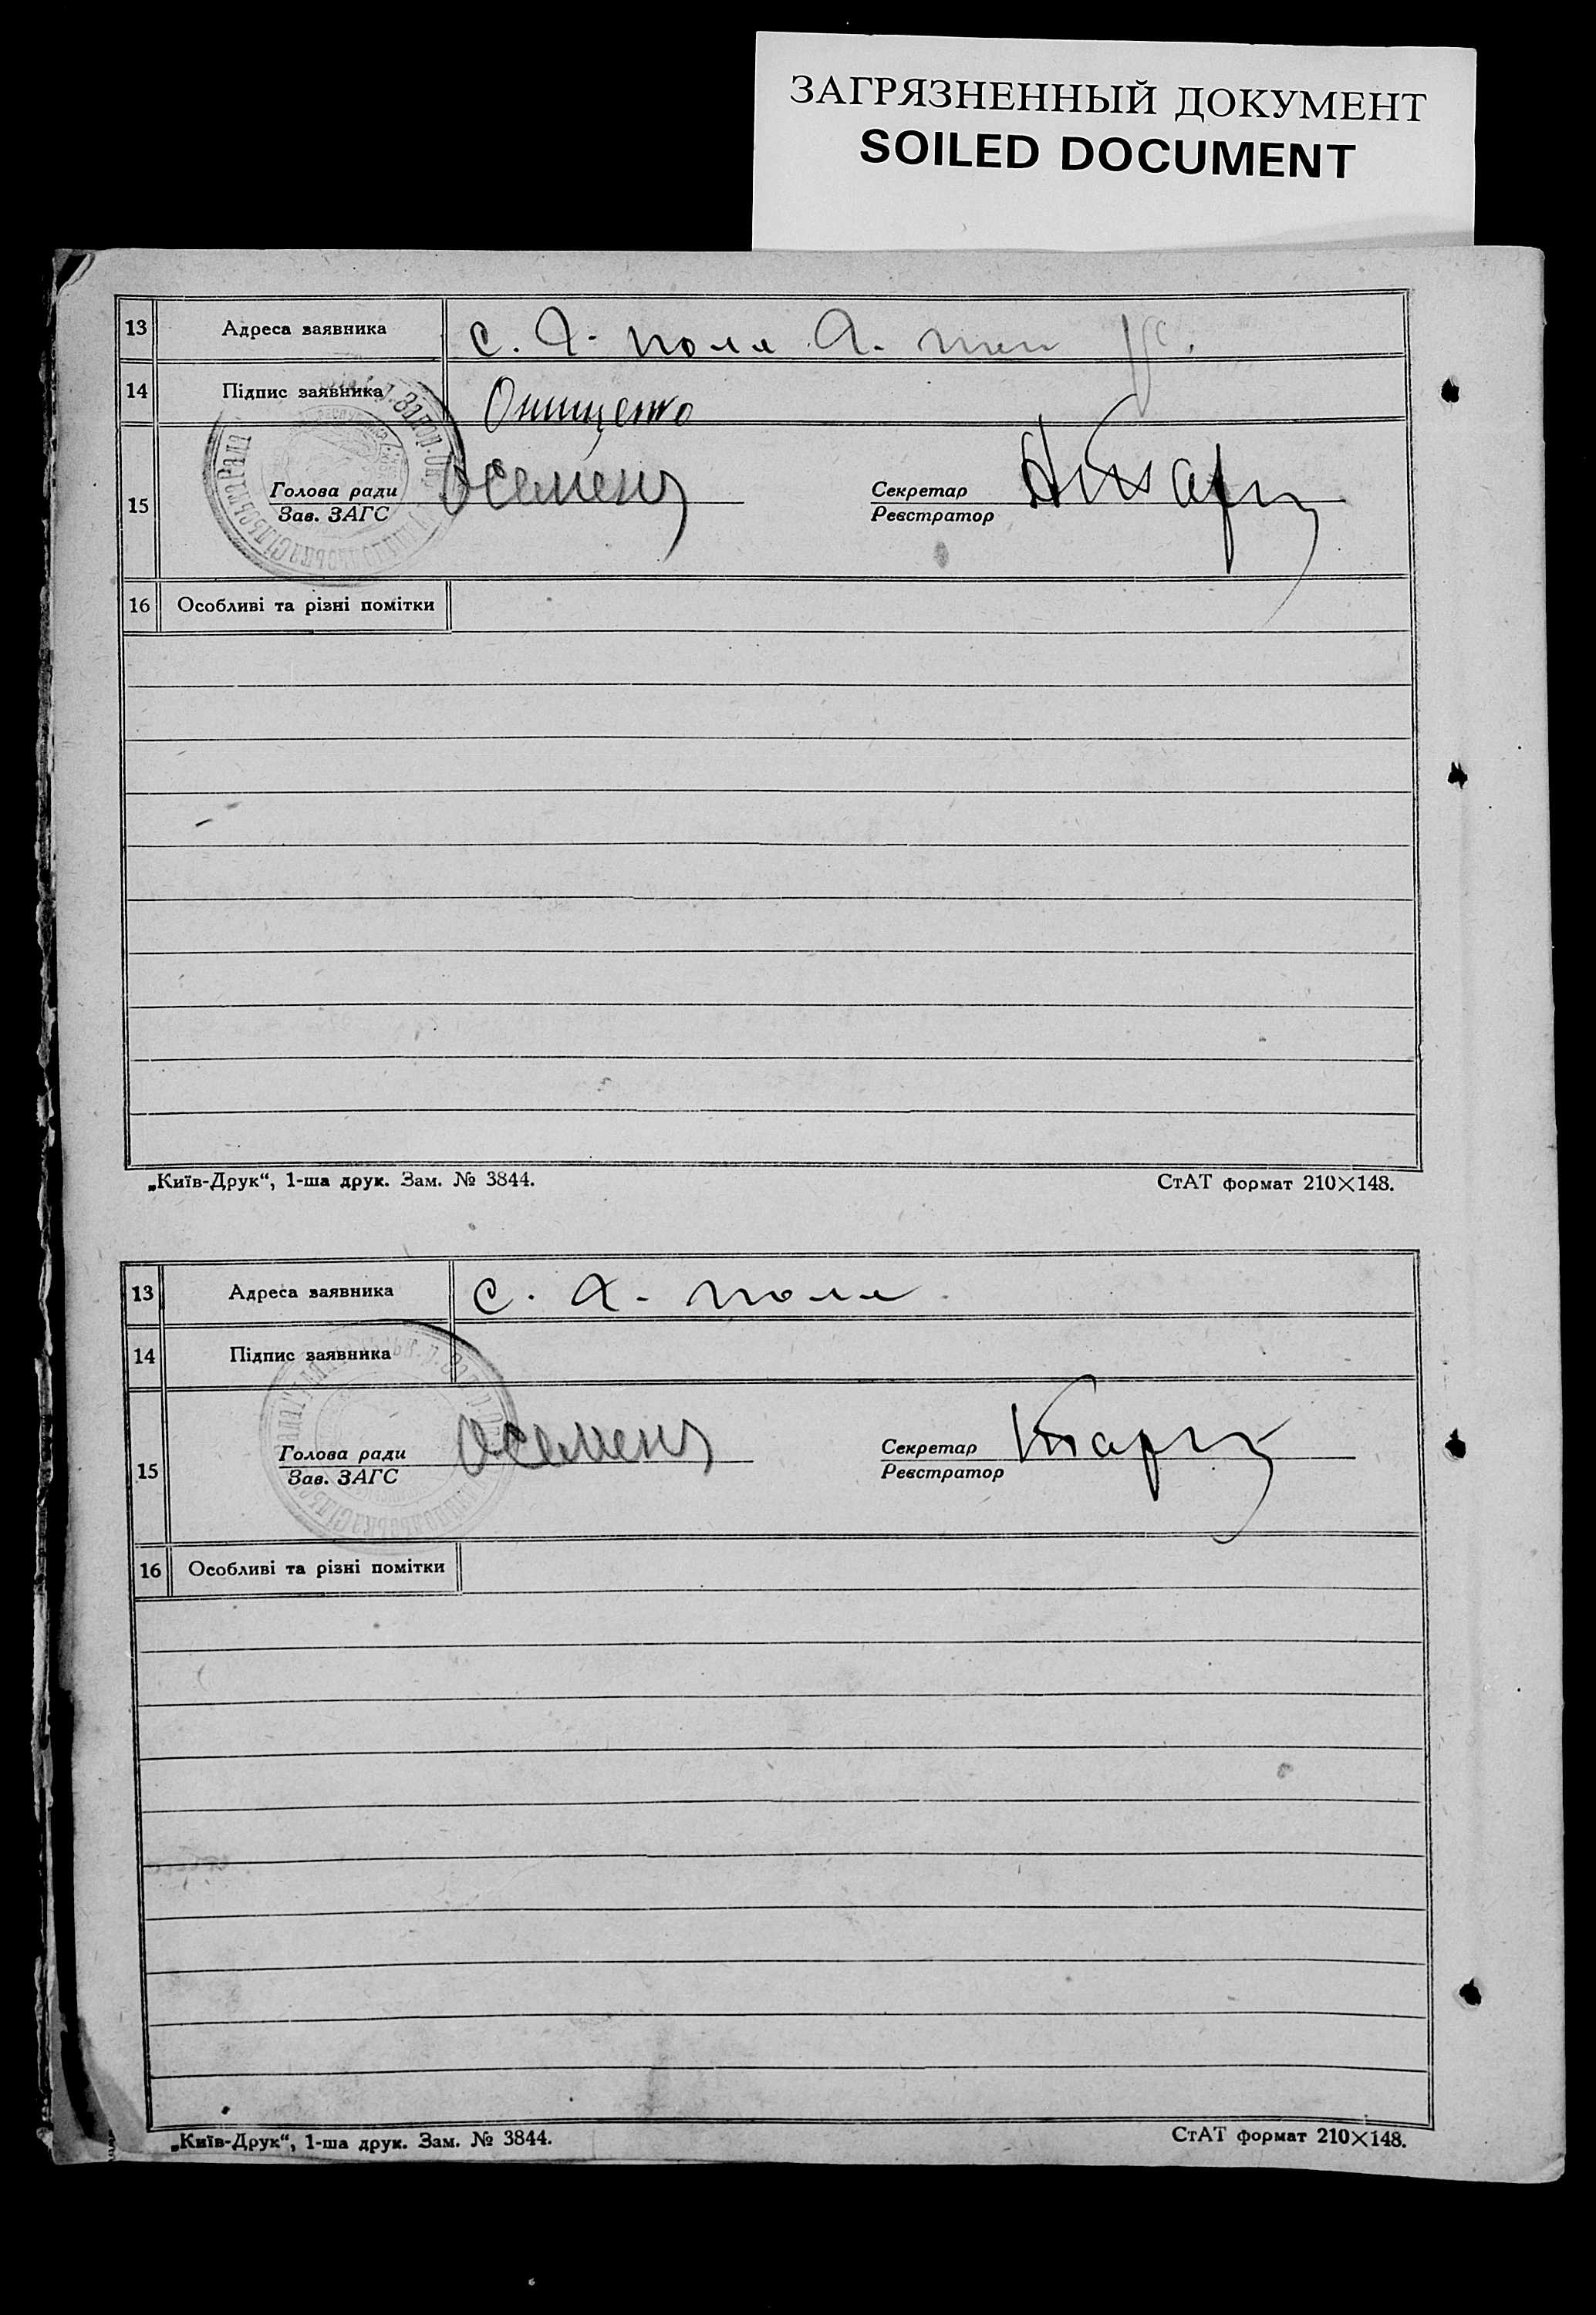 ЗАГРЯЗНЕННЫЙ ДОКУМЕНТ
SOILED DOCUMENT
13 Адреса заявника с. А- поле А.
14 Підпис заявника Онищенко
15 Голова ради Секретар
Зав. ЗАГС Реєстратор
16 Особливі та різні помітки
„Київ-Друк“, 1-ша друк. Зам. № 3844. СтАТ формат 210×148.
13 Адреса заявника с. А- поле
14 Підпис заявника
15 Голова ради Секретар
Зав. ЗАГС Реєстратор
16 Особливі та різні помітки
„Київ-Друк“, 1-ша друк. Зам. № 3844. СтАТ формат 210×148.